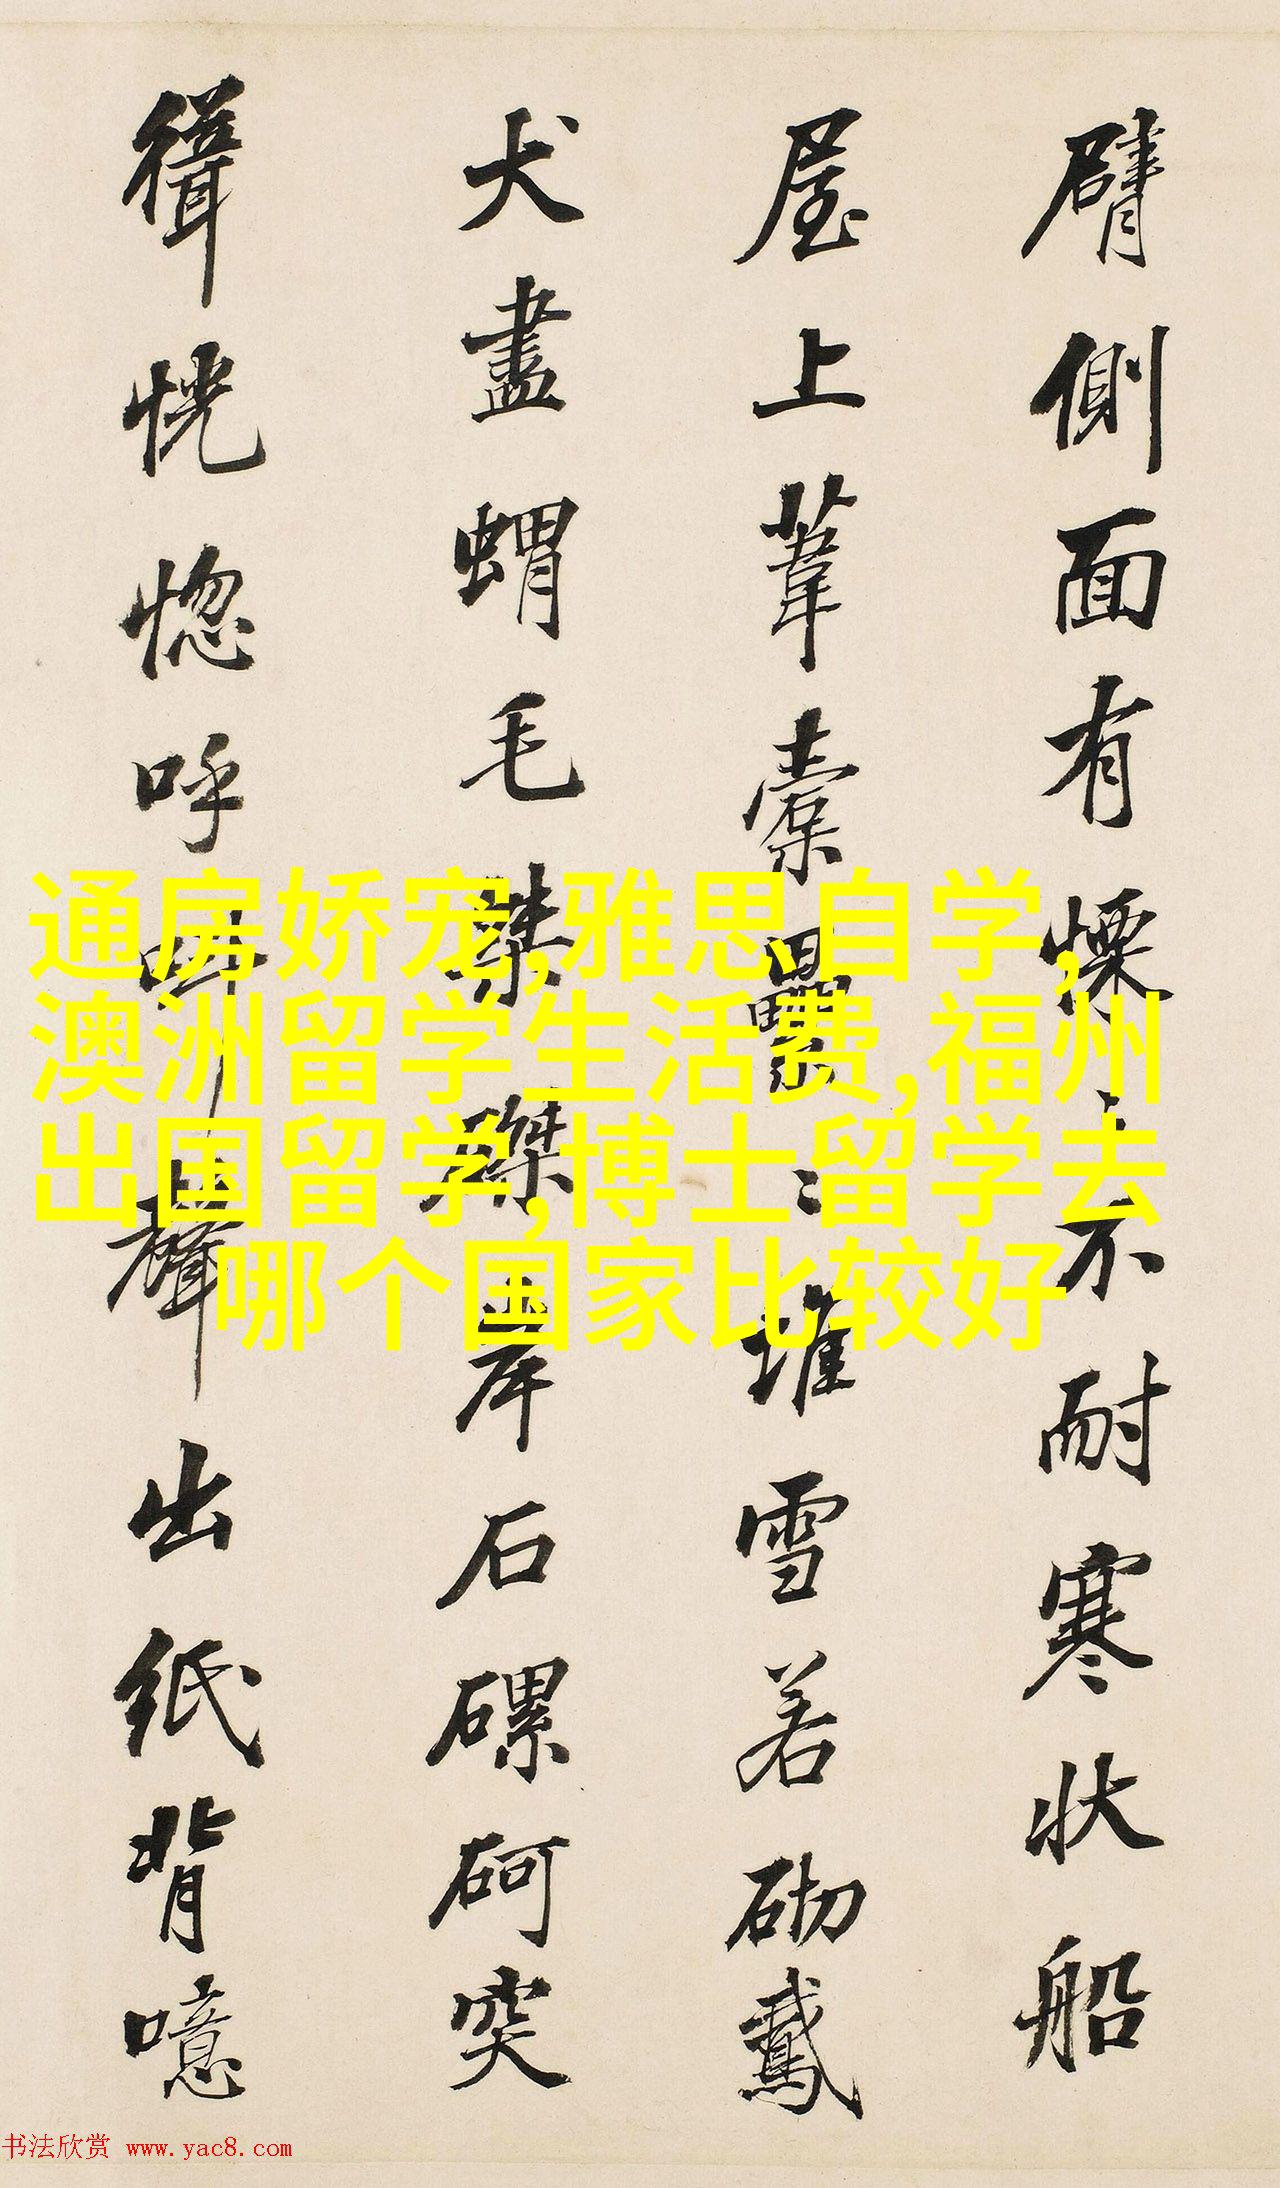 臂側面有慄〻不耐寒状船
屋上葦橐纍〻堆雪若砌鳶
犬盡蝟毛桀磔岸石磥砢突
恍惚呼叫聲出紙背噫
通房娇宠,雅思自学,
澳洲留学生活费,福州
出国留学,博士留学去
哪个国家比较好
书法欣赏 www.yac8.com